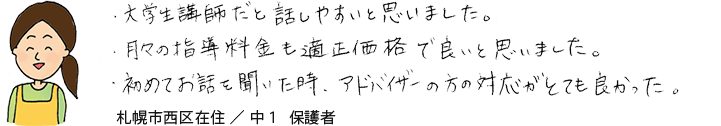 ・大学生講師だと話しやすいと思いました。
・月々の指導料金も適正価格で良いと思いました。
・初めてお話を聞いた時、アドバイザーの方の対応がとても良かった。
札幌市西区在住／中1 保護者